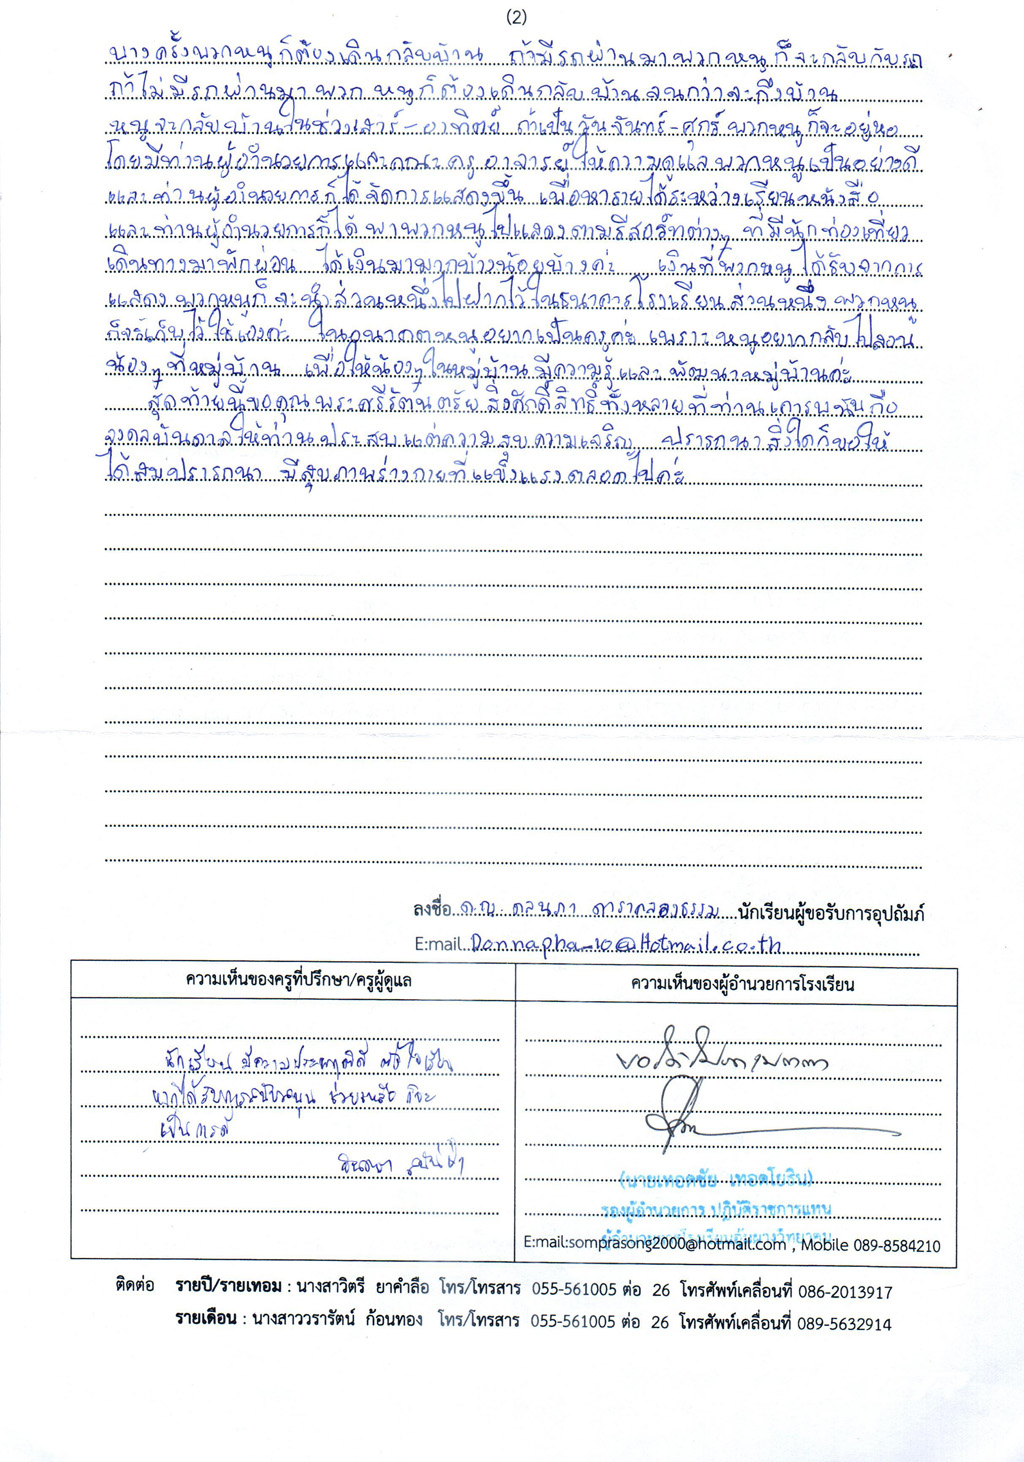 (2)
บางครั้งพวกหนูก็ต้องเดินกลับบ้าน ถ้ามีรถผ่านมาพวกหนูก็จะกลับกับรถ
ถ้าไม่มีรถผ่านมา พวกหนูก็ต้องเดินกลับบ้านจนกว่าจะถึงบ้าน
หนูจะกลับบ้านในช่วงเสาร์-อาทิตย์ ถ้าเป็นวันจันทร์-ศุกร์ พวกหนูก็จะอยู่หอ
โดยมีท่านผู้อำนวยการและคณะครู อาจารย์ ให้ความดูแลพวกหนูเป็นอย่างดี
และท่านผู้อำนวยการก็ได้จัดการแสดงขึ้น เพื่อหารายได้ระหว่างเรียนหนังสือ
และท่านผู้อำนวยการก็ได้พาพวกหนูไปแสดงตามรีสอร์ทต่างๆ ที่มีนักท่องเที่ยว
เดินทางมาพักผ่อน ได้เงินมามากบ้างน้อยบ้างค่ะ เงินที่พวกหนูได้รับจากการ
แสดง พวกหนูก็จะนำส่วนหนึ่งไปฝากไว้ในธนาคารโรงเรียนส่วนหนึ่ง พวกหนู
ก็จะเก็บไว้ใช้เองค่ะ ในอนาคตหนูอยากเป็นครูค่ะ เพราะหนูอยากกลับไปสอน
น้องๆ ที่หมู่บ้าน เพื่อให้น้องๆ ในหมู่บ้านมีความรู้และพัฒนาหมู่บ้านค่ะ
สุดท้ายนี้ขอคุณพระศรีรัตนตรัย สิ่งศักดิ์สิทธิ์ทั้งหลายที่ท่านเคารพนับถือ
จงดลบันดาลให้ท่านประสบแต่ความสุขความเจริญ ปรารถนาสิ่งใดก็ขอให้
ได้สมปรารถนา มีสุขภาพร่างกายที่แข็งแรงตลอดไปค่ะ
ลงชื่อ ด.ญ. ดลนภา ดาราคลองธรรม นักเรียนผู้ขอรับการอุปถัมภ์
E:mail Donnapha_10@Hotmail.co.th
ความเห็นของครูที่ปรึกษา/ครูผู้ดูแล
นักเรียน มีความประพฤติดี ตั้งใจเรียน
หากได้รับการสนับสนุน ช่วยเหลือ ก็จะ
เป็นการดี
ความเห็นของผู้อำนวยการโรงเรียน
(นายเทอดชัย เทอดโยธิน)
รองผู้อำนวยการ ปฏิบัติราชการแทน
E:mail:somprasong2000@hotmail.com , Mobile 089-8584210
ติดต่อ รายปี/รายเทอม : นางสาวิตรี ยาคำลือ โทร/โทรสาร 055-561005 ต่อ 26 โทรศัพท์เคลื่อนที่ 086-2013917
รายเดือน : นางสาววรารัตน์ ก้อนทอง โทร/โทรสาร 055-561005 ต่อ 26 โทรศัพท์เคลื่อนที่ 089-5632914